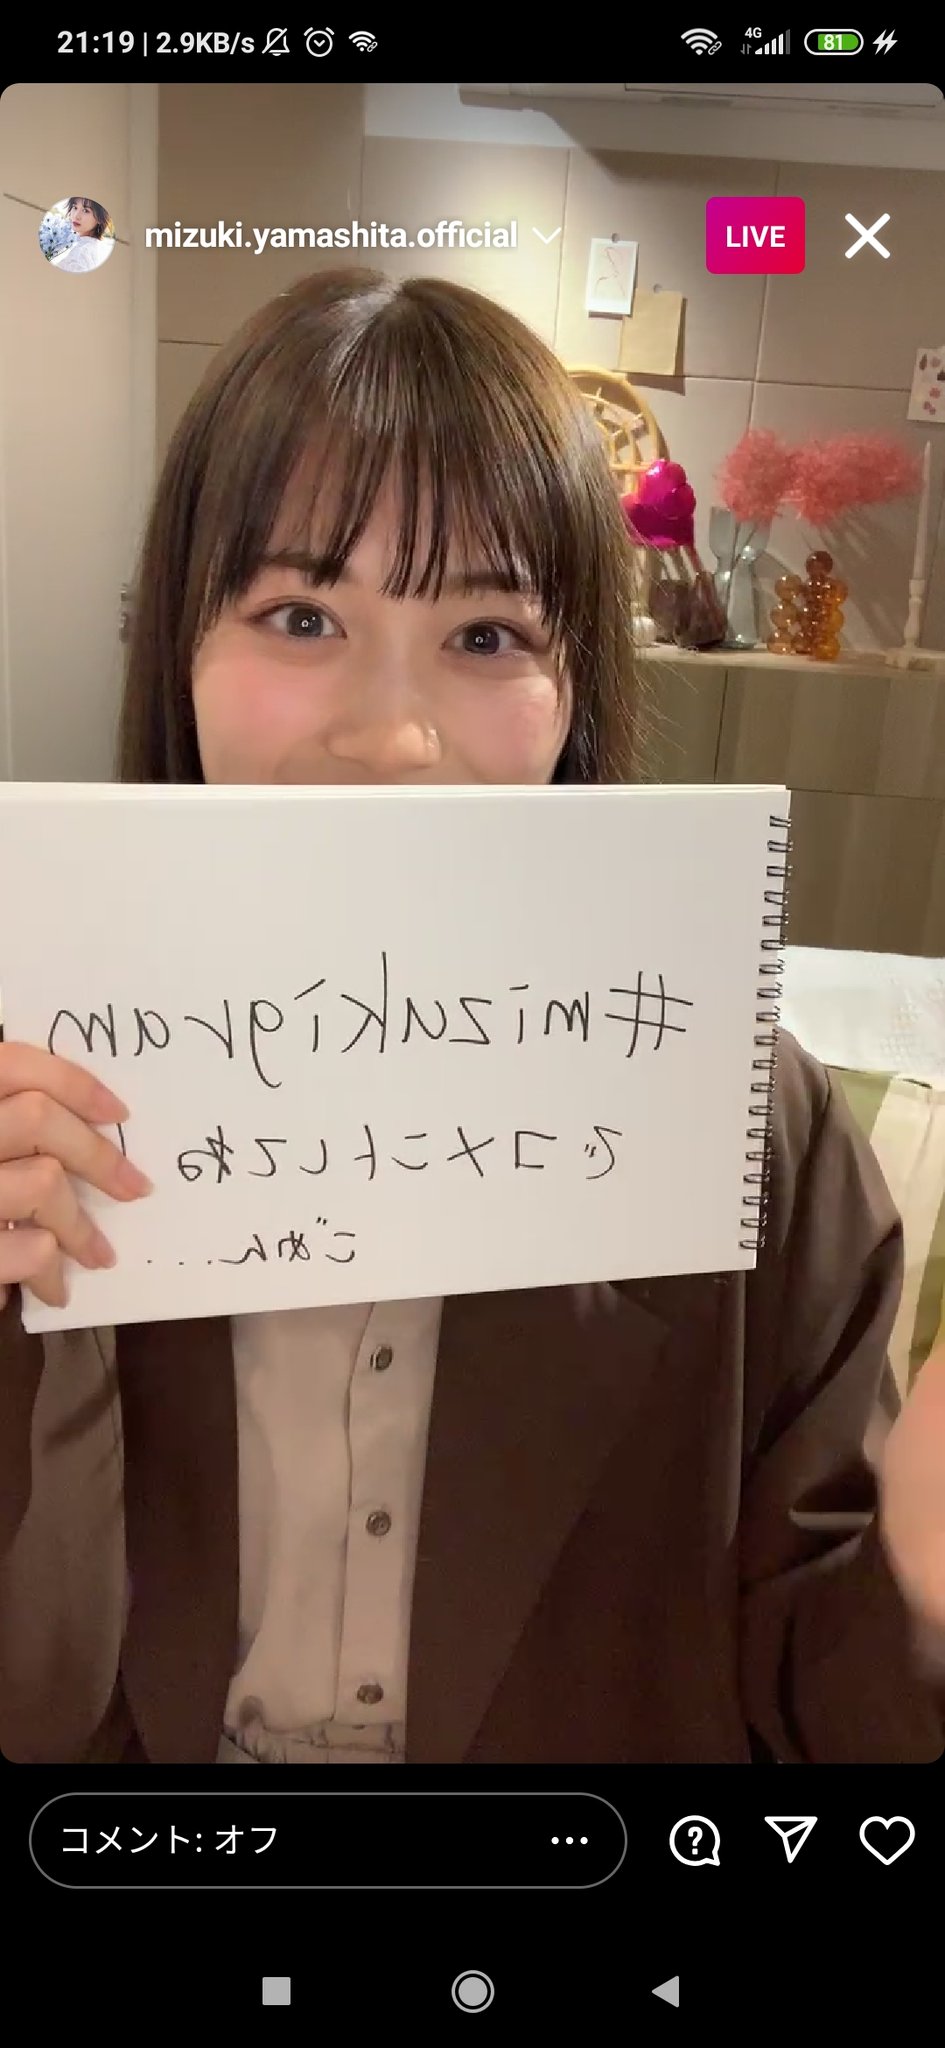 21:19 | 2.9KB/s
4G
81
mizuki.yamashita.official
LIVE
#mizukigram
でコメントしてね
ごめん....
コメント: オフ